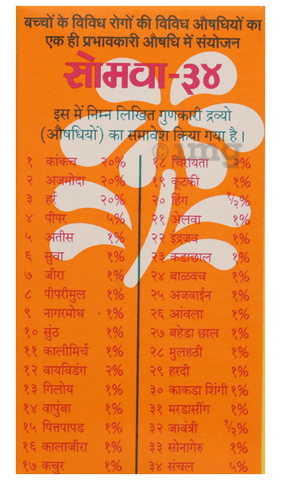 बच्चों के विविध रोगों की विविध औषधियों का
एक ही प्रभावकारी औषधि में संयोजन
सोमवा-३४
इस में निम्न लिखित गुणकारी द्रव्यो
(औषधियों) का समावेश किया गया है।
१ कांकच २०%
२ अजमोदा २०%
३ हरं २०%
४ पीपर ५%
५ अतीस १%
६ सुवा १%
७ जीरा १%
८ पीपरीमुल १%
९ नागरमोथ १%
१० सुंठ १%
११ कालीमिर्च १%
१२ वायविडंग २%
१३ गिलोय १%
१४ वापुंबा १%
१५ पित्तपापड १%
१६ कालाजीरा १%
१७ कचुर १%
१८ चिरायता १%
१९ कुटकी १%
२० हिंग १/२%
२१ अेलवा १%
२२ इंद्रजव १%
२३ कडाछाल १%
२४ बाळवच १%
२५ अजवाईन १%
२६ आंवला १%
२७ बहेडा छाल १%
२८ मुलहठी १%
२९ हरदी १%
३० काकडा शिंगी १%
३१ मरडासींग १%
३२ जावंत्री १/२%
३३ सोनागेरु १%
३४ संचल ५%